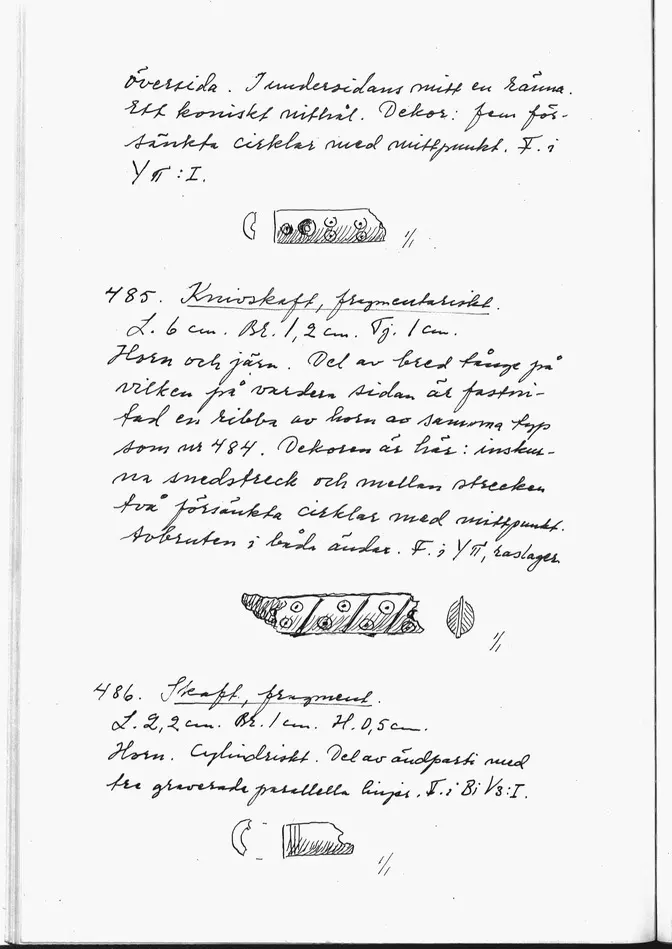 översida. I undersidans mitt en ränna.
Ett koniskt nithål. Dekor: fem för-
sänkta cirklar med mittpunkt. F. i
Y π : I.
1/1
485. Knivskaft, fragmentariskt.
L. 6 cm. Br. 1,2 cm. Tj. 1 cm.
Horn och järn. Del av bred tånge på
vilken på vardera sidan är fastni-
tad en ribba av horn av samma typ
som nr 484. Dekoren är här: inskur-
na snedstreck och mellan strecken
två försänkta cirklar med mittpunkt.
Avbruten i båda ändar. F. i Y π, raslager.
1/1
486. Skaft, fragment.
L. 2,2 cm. Br. 1 cm. H. 0,5 cm.
Horn. Cylindriskt. Del av ändparti med
tre graverade parallella linjer. F. i Bi V3:I.
1/1